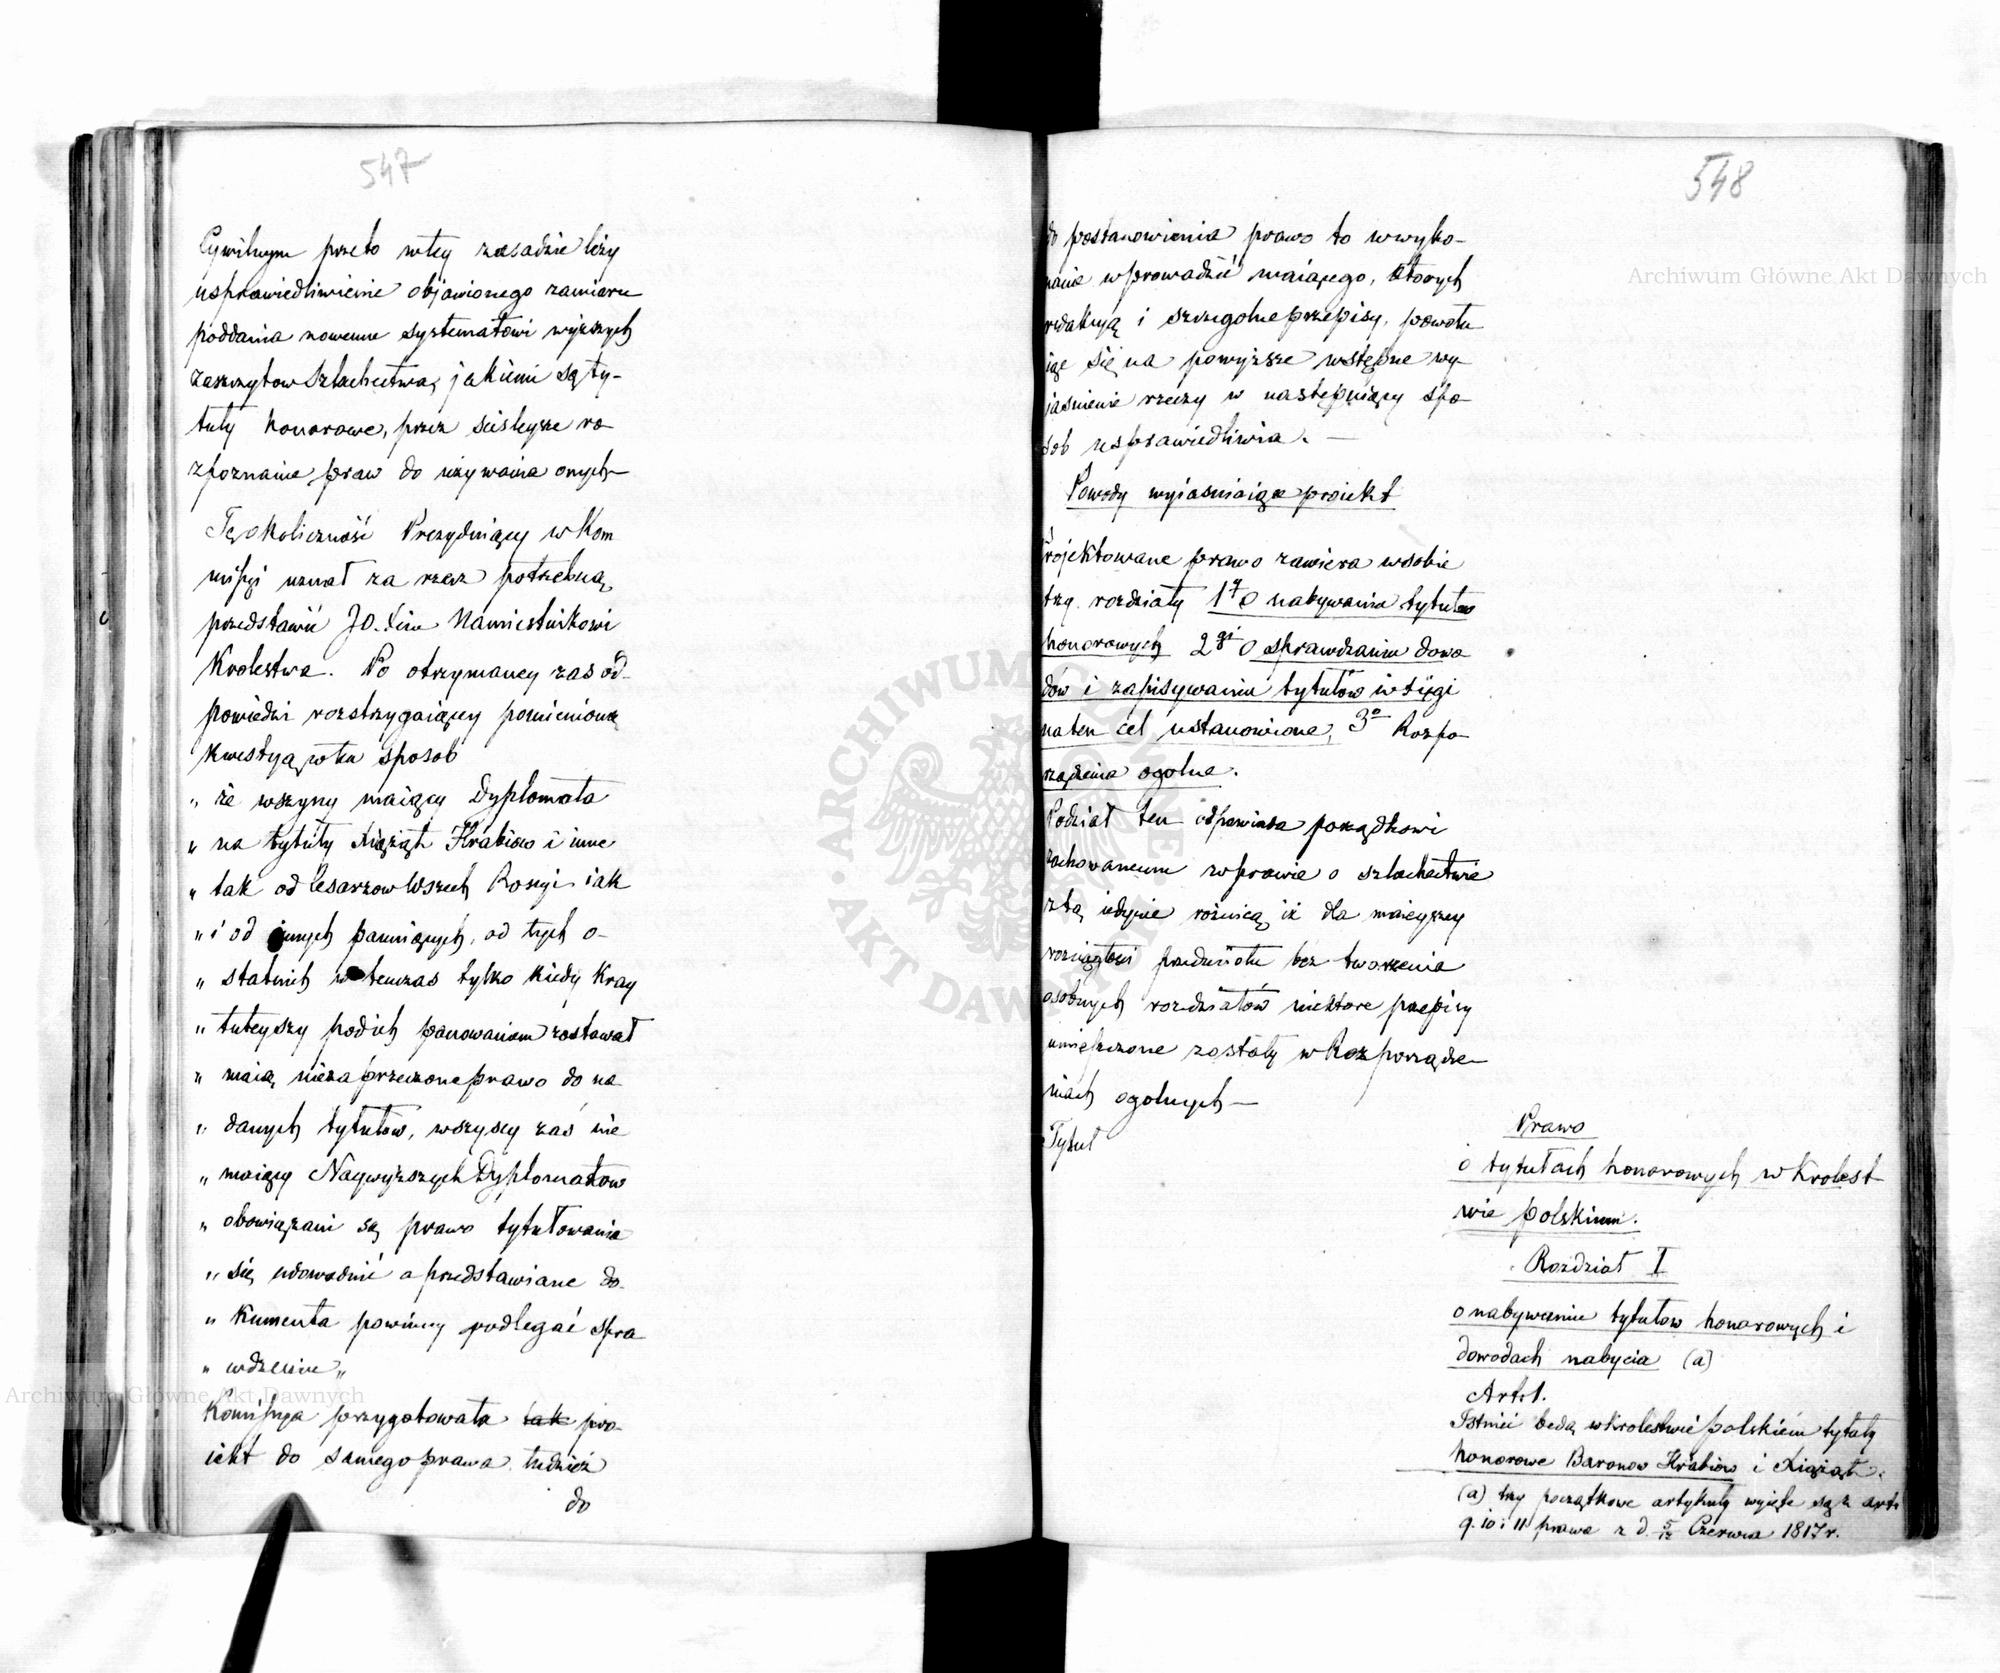 547
Cywilnym przeto w tey zasadzie leży
usprawiedliwienie objawionego zamiaru
poddania nowemu systematowi wyższych
zaszczytow Szlachectwa, jakiemi są ty-
tuły honorowe, przez scisleysze ro-
zpoznanie praw do używania onych—
Tę okoliczność Prezyduiący w Kom
missyi uznał za rzecz potrzebną
przedstawić JO. Xciu Namiestnikowi
Krolestwa. Po otrzymaney zas od-
powiedzi rozstrzygaiącey pomienioną
kwestyą w ten sposob
„ że wszyscy maiący Dyplomata
„ na tytuły Xiążąt Hrabiow i inne
„ tak od Cesarzow Wszech Rossyi iak
„ i od innych panuiących, od tych o-
„ statnich w tenczas tylko kiedy Kray
„ tuteyszy pod ich panowaniem zostawał
„ maią niezaprzeczone prawo do na
„ danych tytułów, wszyscy zaś nie
„ maiący Naywyższych Dyplomatow
„ obowiązani są prawo tytułowania
„ się udowodnić a przedstawiane do-
„ kumenta powinny podlegać spra
„ wdzeniu „
Komissya przygotowała tak pro-
iekt do samego prawa tudzież
do
548
do postanowienia prawo to w wyko-
nanie wprowadzić maiącego, ktorych
redakcyą i szczegolne przepisy, powołu
iąc się na powyższe wstępne wy-
jasnienie rzeczy w następuiący spo-
sob usprawiedliwia. —
Powody wyiasniaiące proiekt
Projektowane prawo zawiera w sobie
trzy rozdziały 1y O nabywaniu tytułow
honorowych 2gi O sprawdzaniu dowo
dów i zapisywaniu tytułów w xięgi
na ten cel ustanowione, 3o Rozpo-
rządzenia ogolne.
Podział ten odpowiada porządkowi
zachowanemu w prawie o szlachectwie
z tą iedynie rożnicą iż dla mnieyszey
rozciągłości przedmiotu bez tworzenia
osobnych rozdziałów niektore przepisy
umieszczone zostały w Rozporządze-
niach ogolnych —
Tytuł
Prawo
o tytułach honorowych w Krolest
wie polskiem.
Rozdział I
o nabywaniu tytułow honorowych i
dowodach nabycia (a)
Art: 1.
Istnieć będą w Krolestwie polskiém tytuły
honorowe Baronow Hrabiow i Xiążąt.
(a) trzy początkowe artykuły wyięte są z art:
9. 10 i 11 prawa z d. 5/17 Czerwca 1817 r.
Archiwum Główne Akt Dawnych
Archiwum Główne Akt Dawnych
ARCHIWUM GŁÓWNE
AKT DAWNYCH